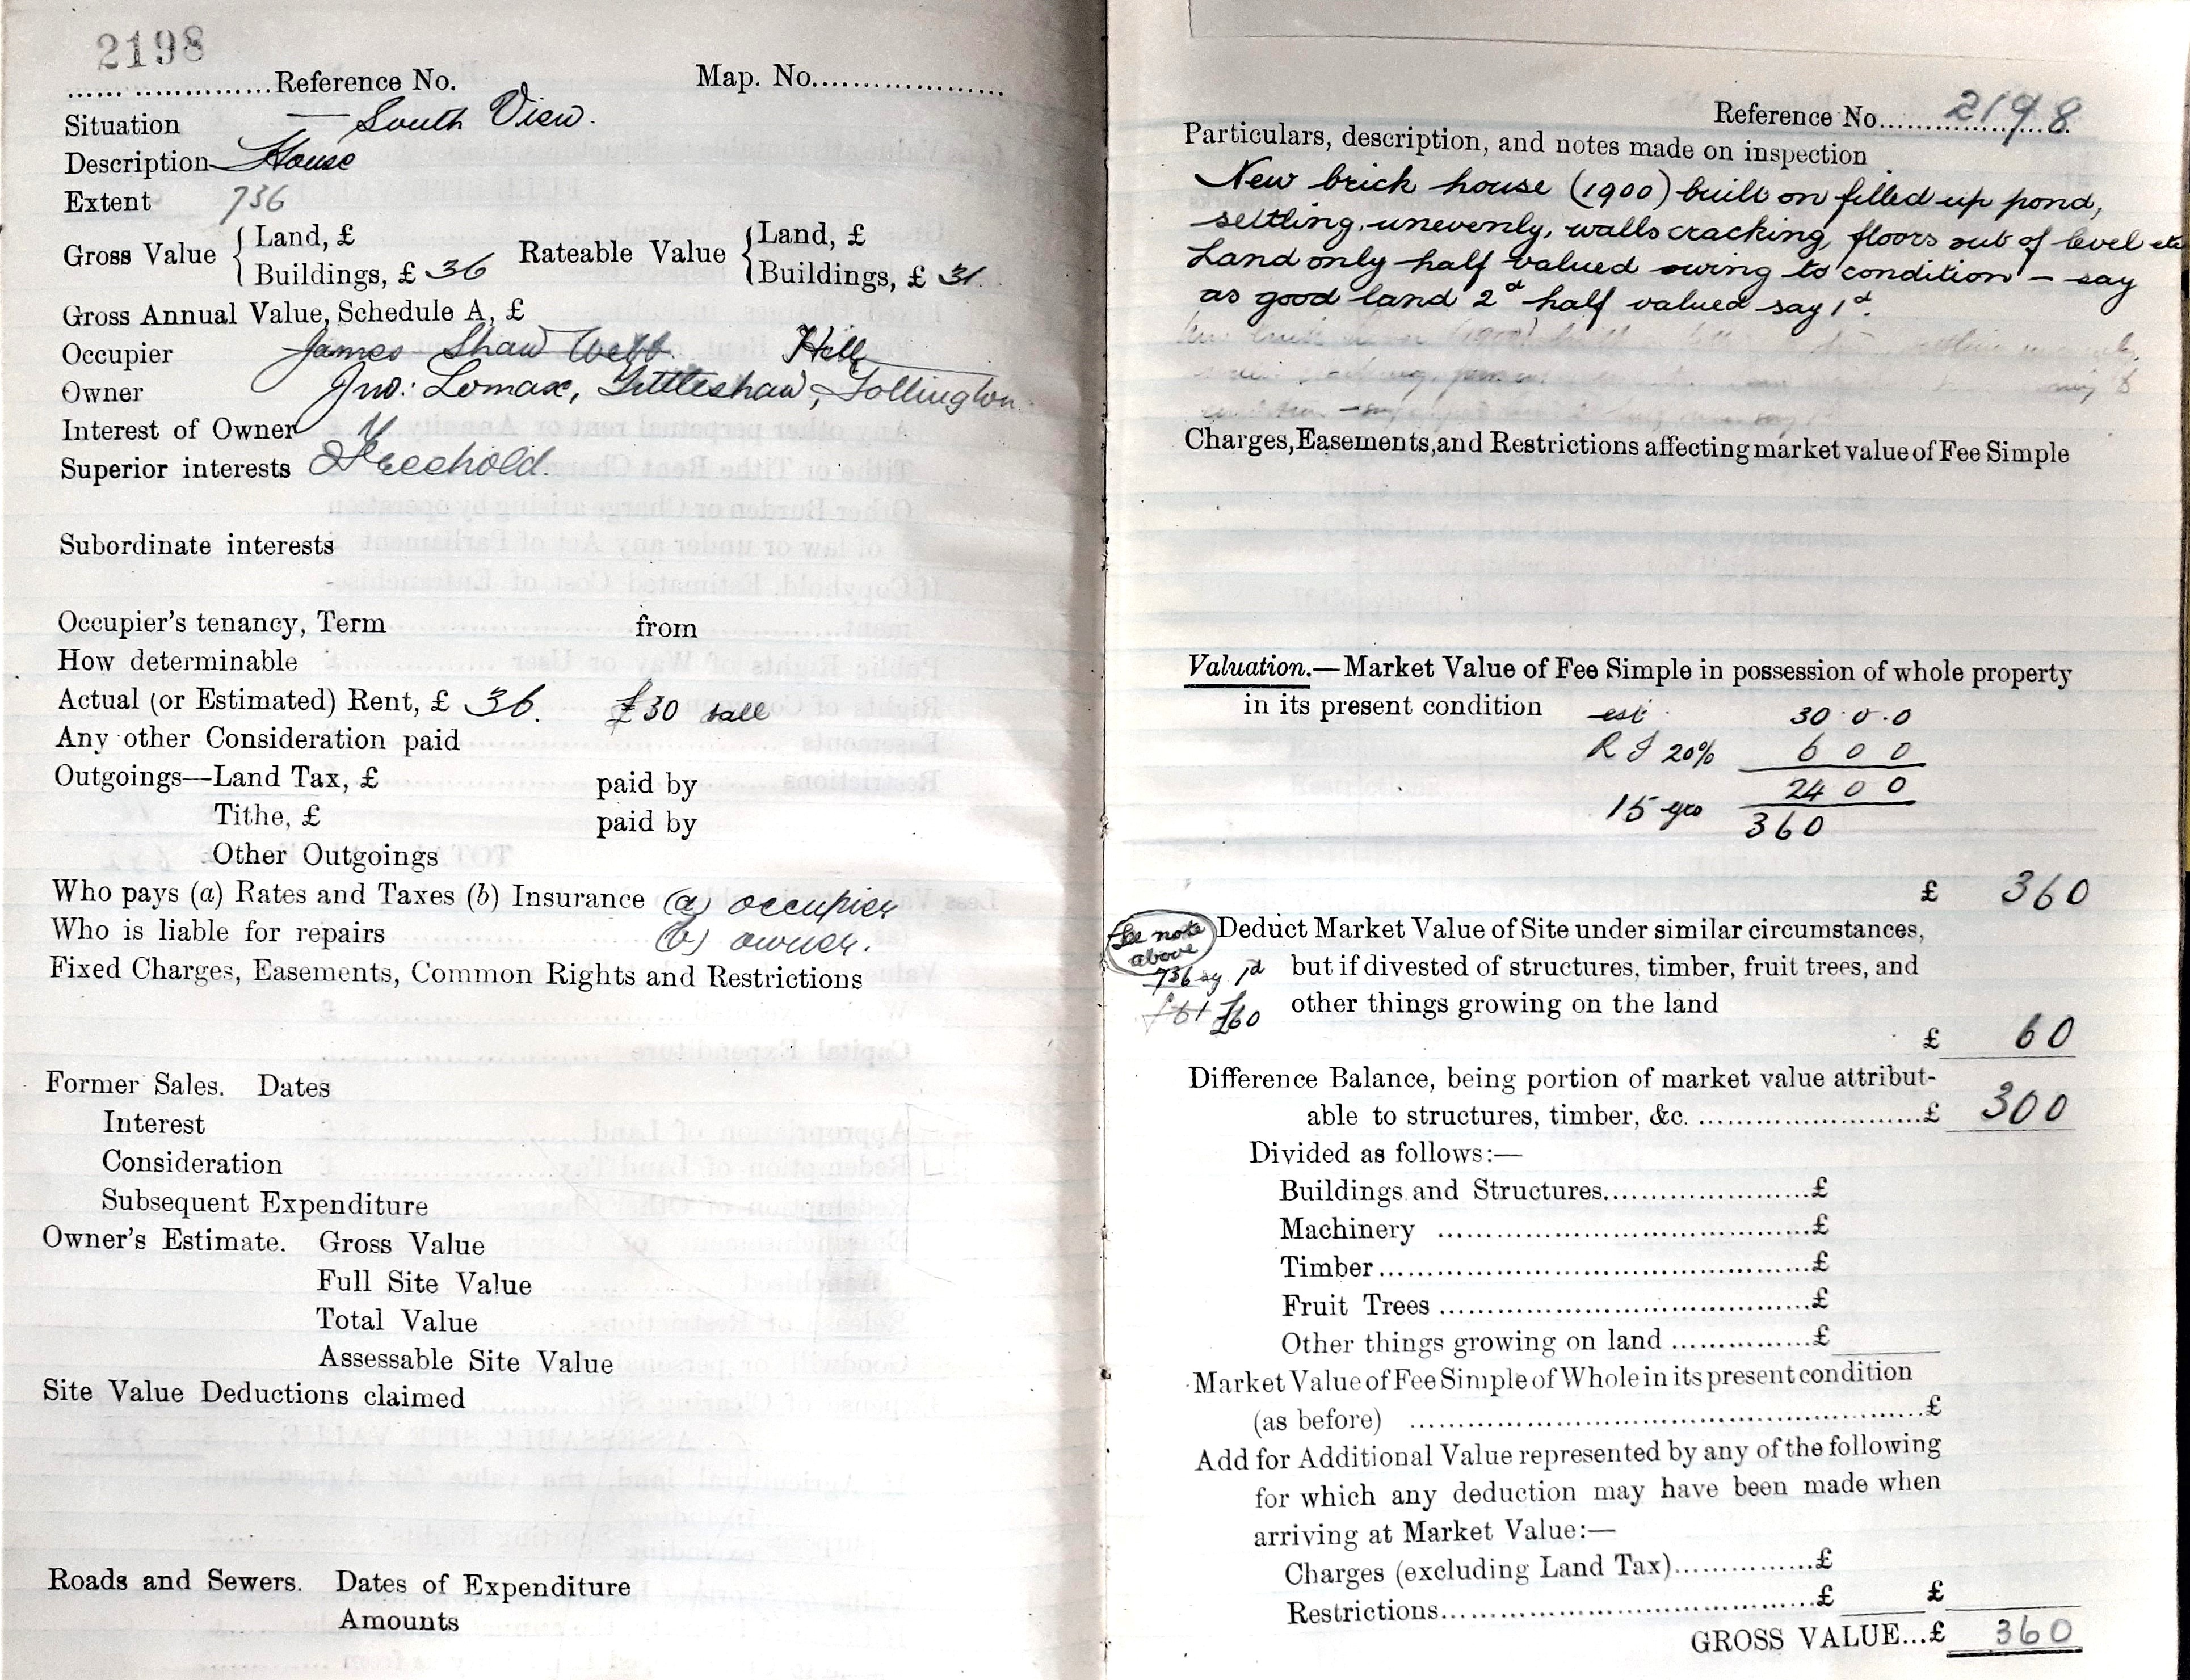 2198
...................Reference No. Map. No...................
Situation — South View.
Description House
Extent 736
Gross Value { Land, £ Rateable Value { Land, £
Buildings, £ 36 Buildings, £ 31.
Gross Annual Value, Schedule A, £
Occupier James Shaw Webb Hill
Owner Jno: Lomax, Littleshaw, Tollington.
Interest of Owner
Superior interests Freehold.
Subordinate interests
Occupier's tenancy, Term from
How determinable
Actual (or Estimated) Rent, £ 36. £30
Any other Consideration paid
Outgoings—Land Tax, £ paid by
Tithe, £ paid by
Other Outgoings
Who pays (a) Rates and Taxes (b) Insurance (a) occupier
Who is liable for repairs (b) owner.
Fixed Charges, Easements, Common Rights and Restrictions
Former Sales. Dates
Interest
Consideration
Subsequent Expenditure
Owner's Estimate. Gross Value
Full Site Value
Total Value
Assessable Site Value
Site Value Deductions claimed
Roads and Sewers. Dates of Expenditure
Amounts
Reference No.................... 2198
Particulars, description, and notes made on inspection
New brick house (1900) built on filled up pond,
settling, unevenly, walls cracking, floors out of level etc
Land only half valued owing to condition – say
as good land 2d half valued say 1d.
Charges, Easements, and Restrictions affecting market value of Fee Simple
Valuation.—Market Value of Fee Simple in possession of whole property
in its present condition est 30 . 0 . 0
R I 20% 6 0 0
24 0 0
15 yrs 360
£ 360
See note above
Deduct Market Value of Site under similar circumstances,
736 sy 1d but if divested of structures, timber, fruit trees, and
£61 £60 other things growing on the land
£ 60
Difference Balance, being portion of market value attribut-
able to structures, timber, &c. ......................£ 300
Divided as follows:—
Buildings and Structures...................£
Machinery ...................................£
Timber.........................................£
Fruit Trees ...................................£
Other things growing on land .............£
Market Value of Fee Simple of Whole in its present condition
(as before) .............................................£
Add for Additional Value represented by any of the following
for which any deduction may have been made when
arriving at Market Value:—
Charges (excluding Land Tax).............£
Restrictions...................................£ £
GROSS VALUE...£ 360